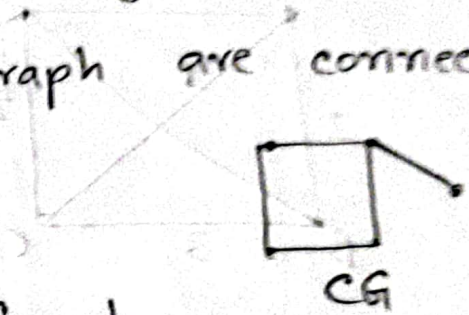 raph are connec
CG